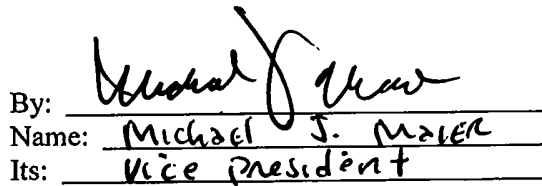 By: Michael J. Maier
Name: Michael J. Maier
Its: Vice President